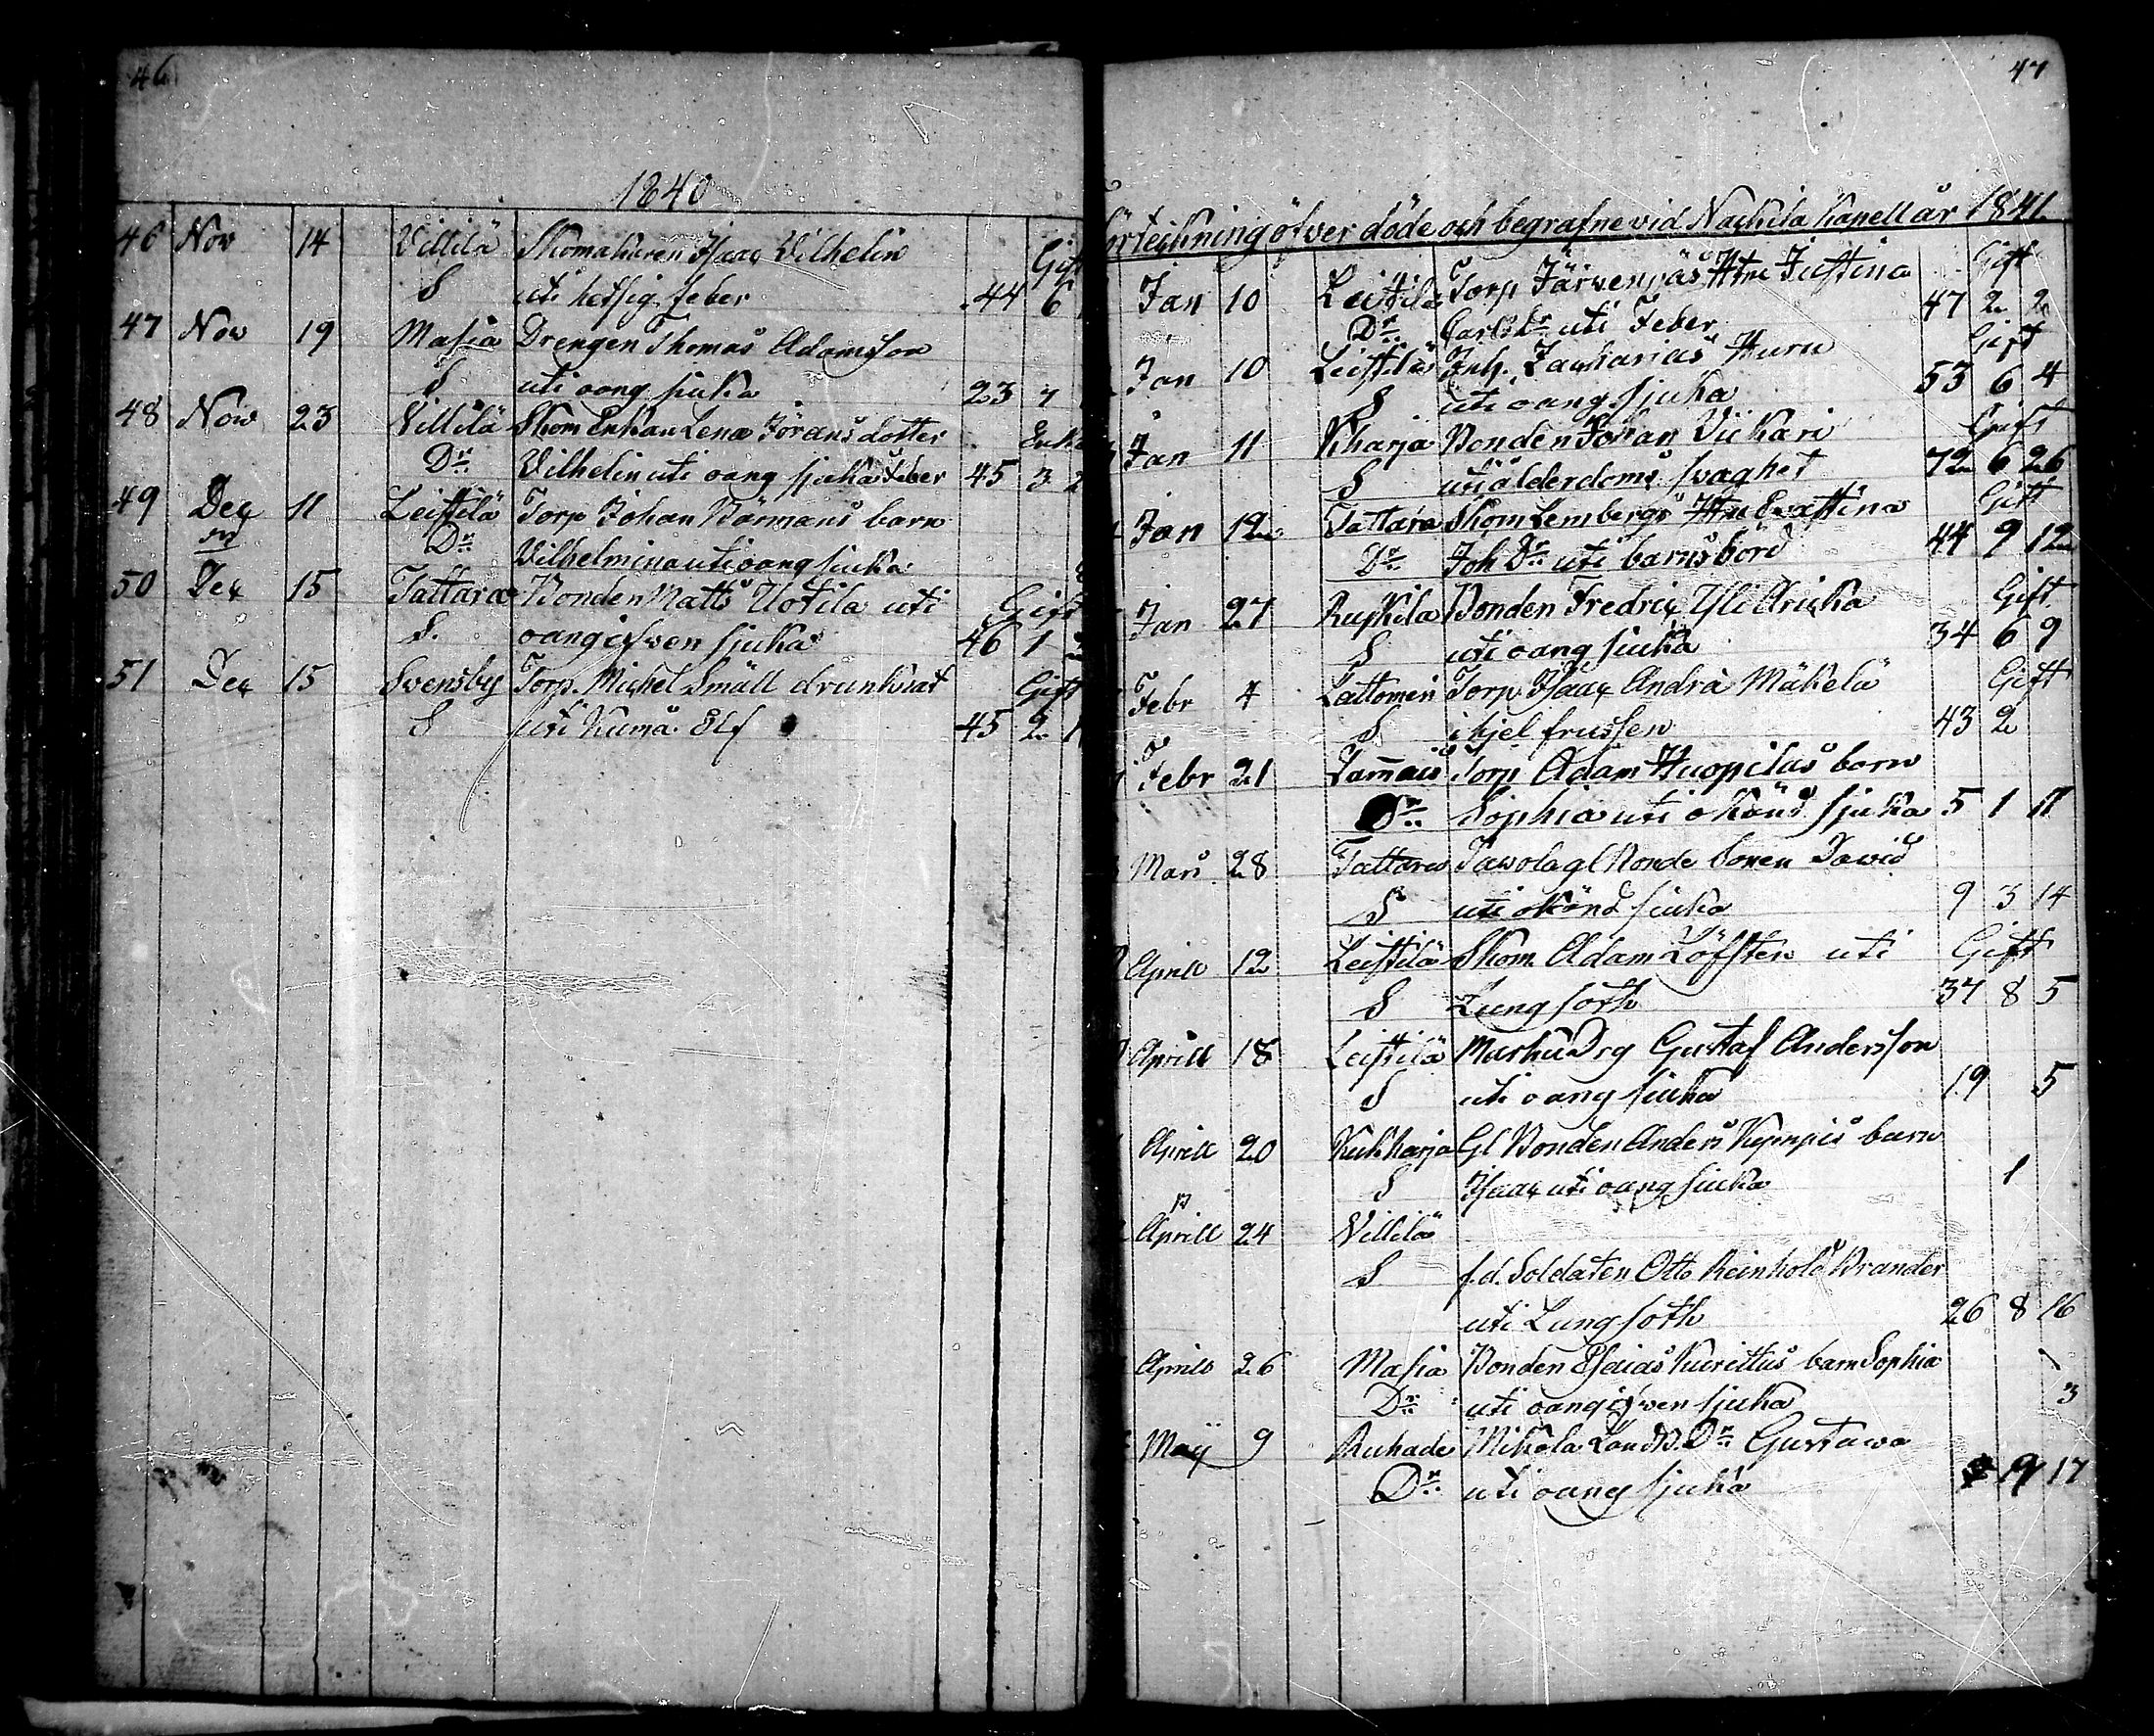 46
1840
46 Nov 14 Villilä Skomakaren Isaac Vilhelin Gift
S uti hetsig feber 44 6
47 Nov 19 Masia Drengen Thomas Adamsson
S uti oang sjuka 23 7
48 Nov 23 Villilä Skom Enkan Lena Jöransdotter Enka
Dr Vilhelin uti oang sjuka Feber 45 3 2
49 Dec 11 Leistilä Torp Johan Bärmans barn
Dr Vilhelmina uti oang sjuka
50 Dec 15 Tattara Bonden Matts Uotila uti Gift
S. oangifwen sjuka 46 1
51 Dec 15 Svensby Torp. Michel Smäll drunknat Gift
S uti Kumå Elf 45 2
47
Förteckning öfver döde och begrafne vid Nackila Kapell år 1841
Jan 10 Leistilä Torp Järvenpäs Htru Justina Gift
Dr Carls Dr uti Feber 47 2 2
Jan 10 Leistilä Inh. Zacharias Huru Gift
S uti oang sjuka 53 6 4
Jan 11 Kharja Bonden Johan Vickari Gift
S uti ålderdoms svaghet 72 6 26
Jan 12 Tattara Skom Lembergs Htru Evastina Gift
Dr Joh Dr uti barnsbörd 44 9 12
Jan 27 Ruskila Bonden Fredric Yli Aricka Gift
S uti oang sjuka 34 6 9
Febr 4 Lattomeri Torp Isaac Andrä Mäkelä Gift
S ihjel frussen 43 2
Febr 21 Lammais Torp Adam Huopilas barn
Dr Sophia uti okänd sjuka 5 1 11
Mars 28 Tattara Tawola gl Bonde Sonen David
S uti okänd sjuka 9 3 14
Aprill 12 Leistilä Skom Adam Löfsten uti Gift
S Lungsoth 37 8 5
Aprill 18 Leistilä Marku Drg Gustaf Andersson
S uti oang sjuka 19 5
Aprill 20 Kukharja Gl Bonden Anders Kympis barn
S Isaac uti oang sjuka 1
Aprill 24 Villilä
S f.d. Soldaten Otto Reinhold Brander
uti Lungsoth 26 8 16
Aprill 26 Masia Bonden Esaias Kurittus barn Sophia
Dr uti oangifwen sjuka 3
Maij 9 Ruhade Mikola LandB. Dr Gustawa
Dr uti oang sjuka 19 17